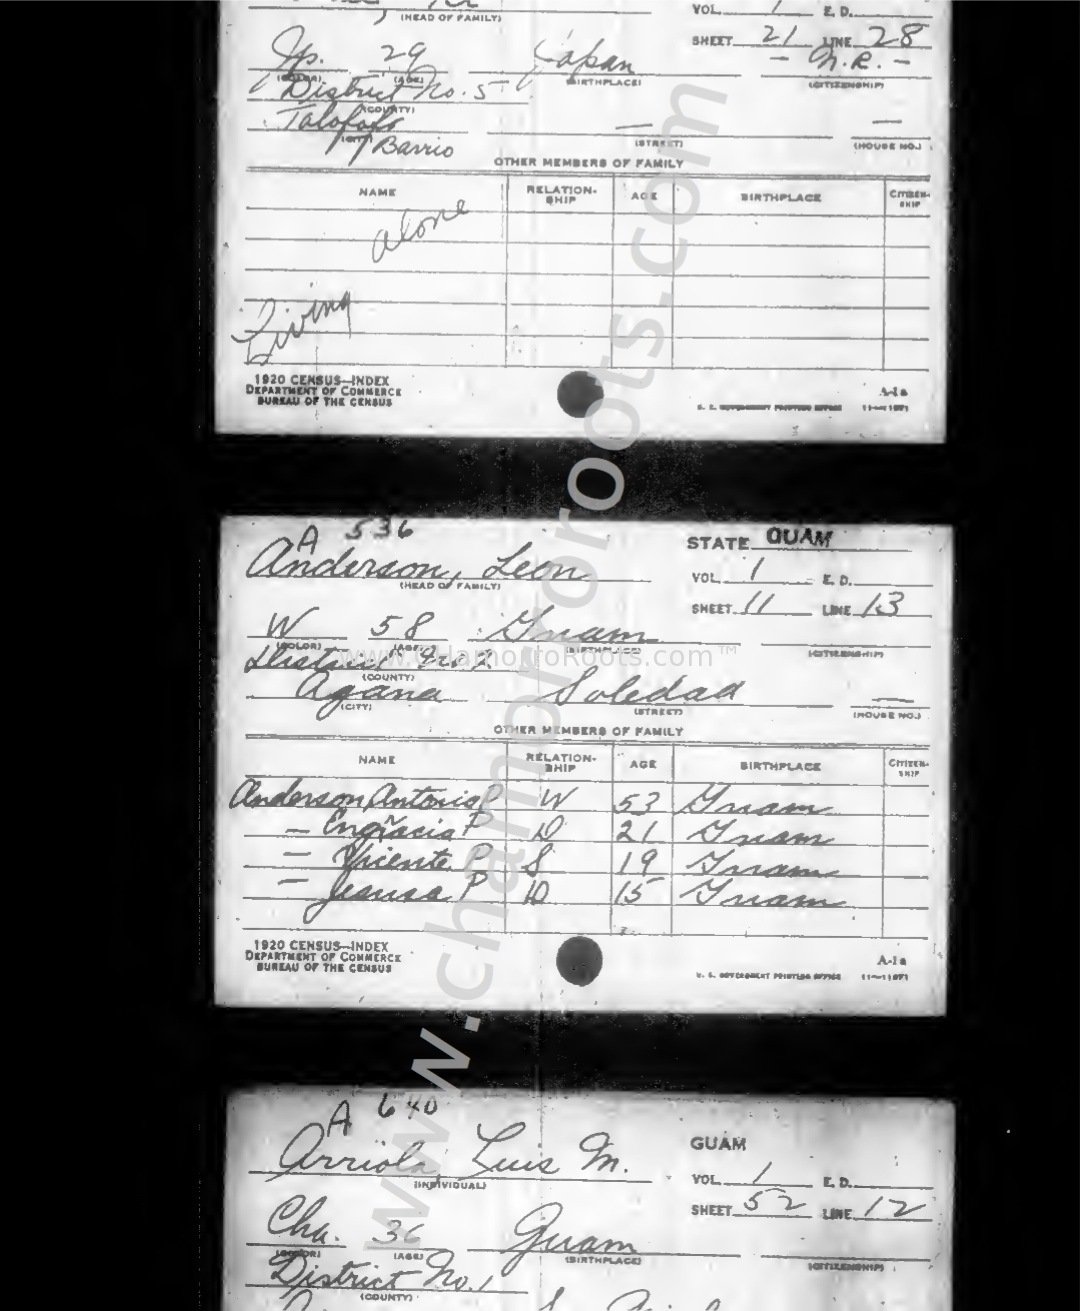 (HEAD OF FAMILY)
VOL. 1 E. D.
SHEET 21 LINE 28
Jp. 29 Japan - N.R. -
(COLOR) (AGE) (BIRTHPLACE) (CITIZENSHIP)
District No. 5
(COUNTY)
Talofofo — —
(CITY) (STREET) (HOUSE NO.)
Barrio
OTHER MEMBERS OF FAMILY
NAME RELATION-SHIP AGE BIRTHPLACE CITIZEN-SHIP
alone
Living
1920 CENSUS—INDEX
DEPARTMENT OF COMMERCE
BUREAU OF THE CENSUS
A-1a
U. S. GOVERNMENT PRINTING OFFICE 11—11071
A 536
STATE GUAM
Anderson, Leon
(HEAD OF FAMILY)
VOL. 1 E. D.
SHEET 11 LINE 13
W 58 Guam
(COLOR) (AGE) (BIRTHPLACE) (CITIZENSHIP)
District No 2
(COUNTY)
Agana Soledad —
(CITY) (STREET) (HOUSE NO.)
OTHER MEMBERS OF FAMILY
NAME RELATION-SHIP AGE BIRTHPLACE CITIZEN-SHIP
Anderson, Antonia P W 53 Guam
— Engracia P D 21 Guam
— Vicente P S 19 Guam
— Jesusa P D 15 Guam
1920 CENSUS—INDEX
DEPARTMENT OF COMMERCE
BUREAU OF THE CENSUS
A-1a
U. S. GOVERNMENT PRINTING OFFICE 11—11071
A 640
GUAM
Arriola, Luis M.
(INDIVIDUAL)
VOL. 1 E. D.
SHEET 52 LINE 12
Cha. 36 Guam
(COLOR) (AGE) (BIRTHPLACE) (CITIZENSHIP)
District No. 1
(COUNTY)
www.chamorroroots.com
www.CHamorroRoots.com™